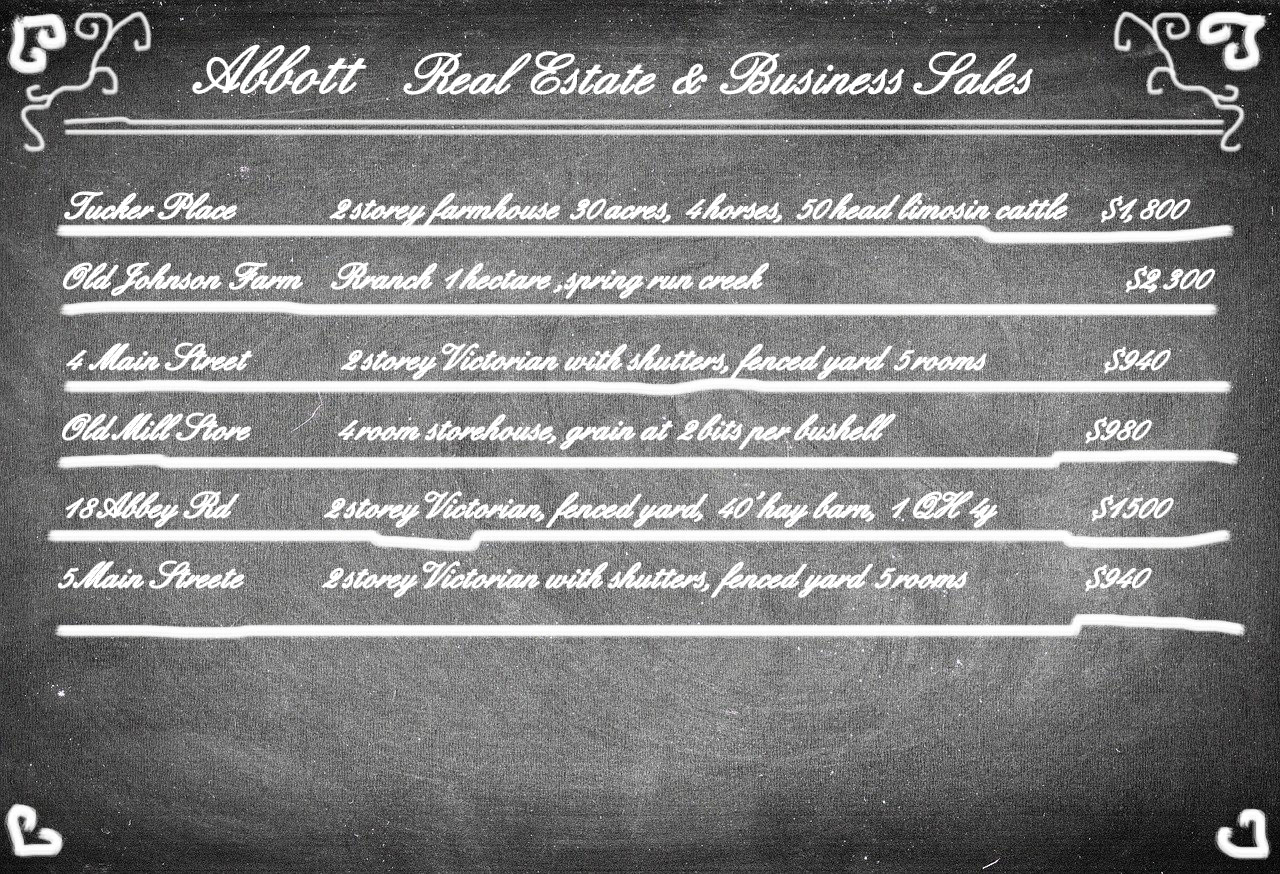 Abbott Real Estate & Business Sales
Tucker Place 2 storey farmhouse 30 acres, 4 horses, 50 head limosin cattle $1,800
Old Johnson Farm Rranch 1 hectare ,spring run creek $2,300
4 Main Street 2 storey Victorian with shutters, fenced yard 5 rooms $940
Old Mill Store 4 room storehouse, grain at 2 bits per bushell $980
18 Abbey Rd 2 storey Victorian, fenced yard, 40' hay barn, 1 QH 4y $1500
5 Main Streete 2 storey Victorian with shutters, fenced yard 5 rooms $940